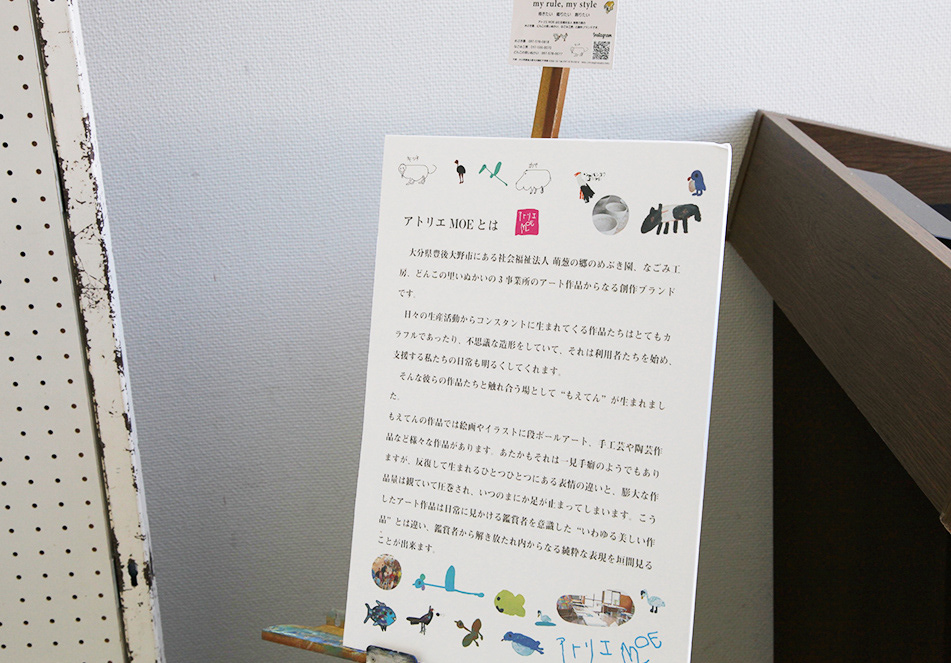 my rule, my style
Instagram
アトリエ MOE とは
アトリエ
MOE
大分県豊後大野市にある社会福祉法人 萌葱の郷のめぶき園、なごみ工
房、どんこの里いぬかいの3事業所のアート作品からなる創作ブランド
です。
日々の生産活動からコンスタントに生まれてくる作品たちはとてもカ
ラフルであったり、不思議な造形をしていて、それは利用者たちを始め、
支援する私たちの日常も明るくしてくれます。
そんな彼らの作品たちと触れ合う場として“もえてん”が生まれまし
た。
もえてんの作品では絵画やイラストに段ボールアート、手工芸や陶芸作
品など様々な作品があります。あたかもそれは一見手癖のようでもあり
ますが、反復して生まれるひとつひとつにある表情の違いと、膨大な作
品量は観ていて圧巻され、いつのまにか足が止まってしまいます。こう
したアート作品は日常に見かける鑑賞者を意識した“いわゆる美しい作
品”とは違い、鑑賞者から解き放たれ内からなる純粋な表現を垣間見る
ことが出来ます。
アトリエ MOE